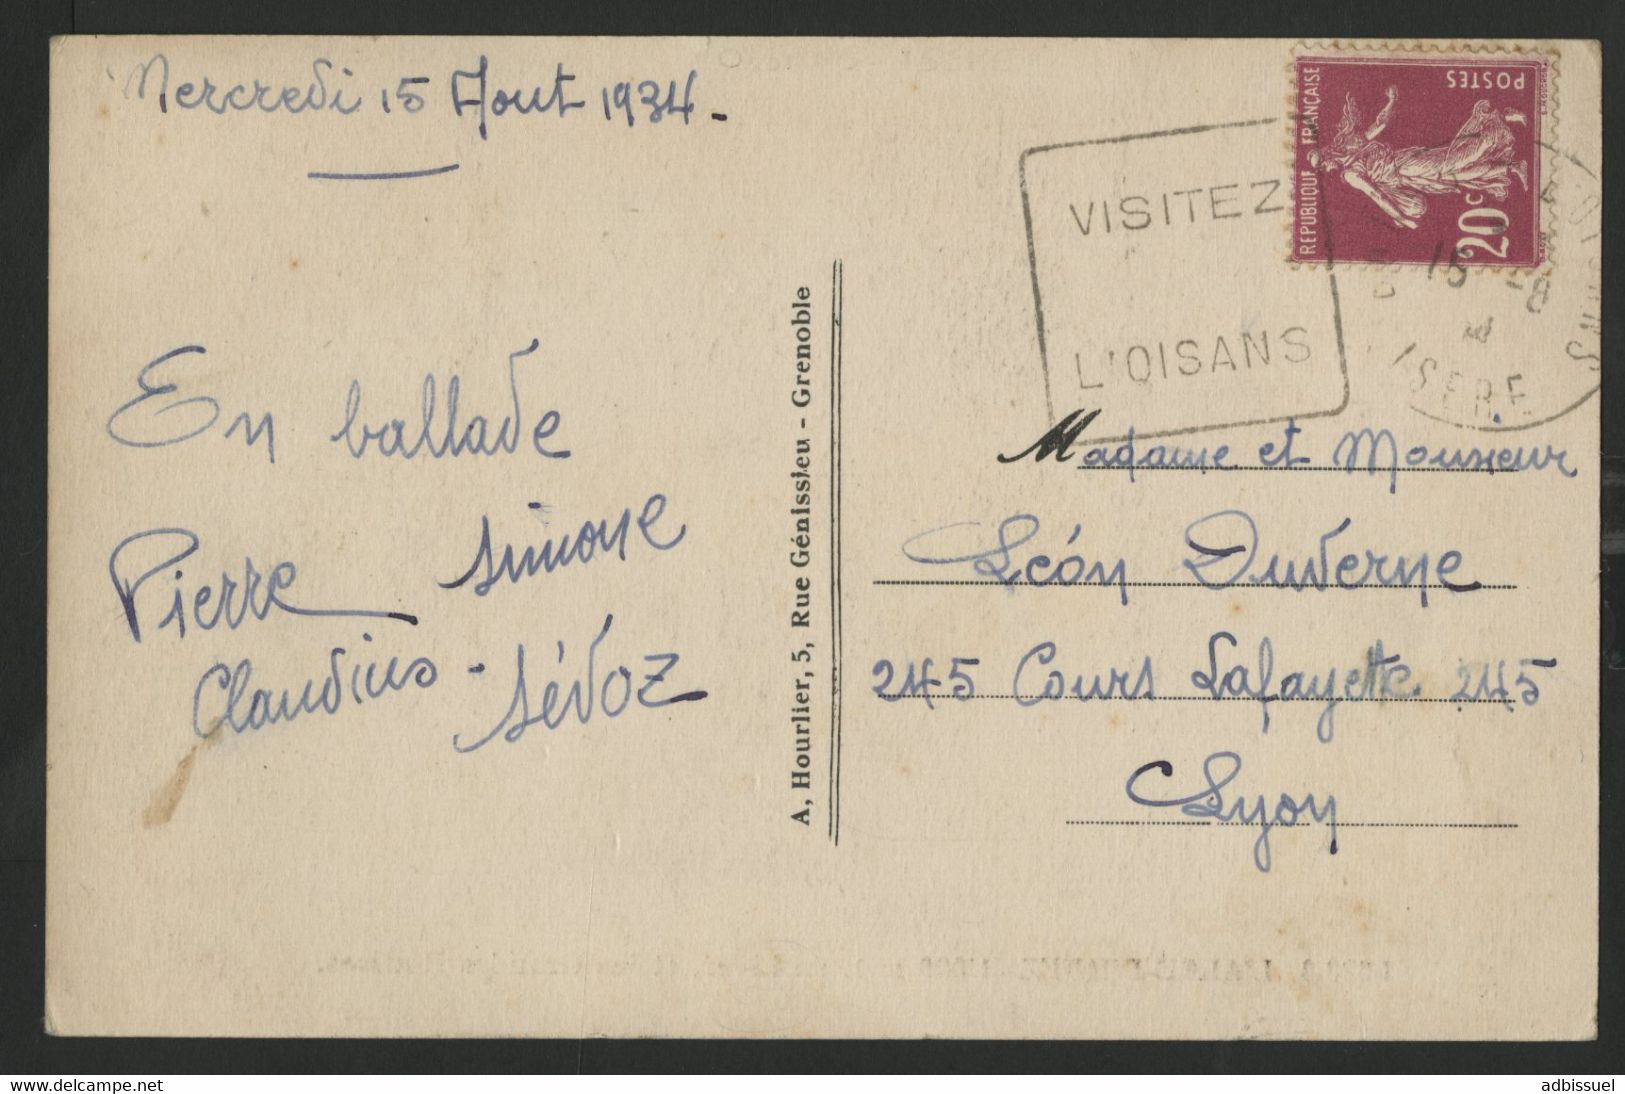 Mercredi 15 Aout 1934.
En ballade
Pierre Simone
Claudius - Sévoz
A, Hourlier, 5, Rue Génissieu - Grenoble
VISITEZ
L'OISANS
REPUBLIQUE FRANÇAISE
POSTES
20c
15 -8
ISERE
Madame et Monsieur
Léon Duverne
245 Cours Lafayette 245
Lyon
(c) www.delcampe.net
adbissuel